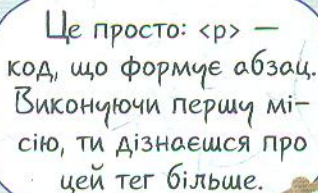 Це просто: <p> —
код, що формує абзац.
Виконуючи першу мі-
сію, ти дізнаєшся про
цей тег більше.